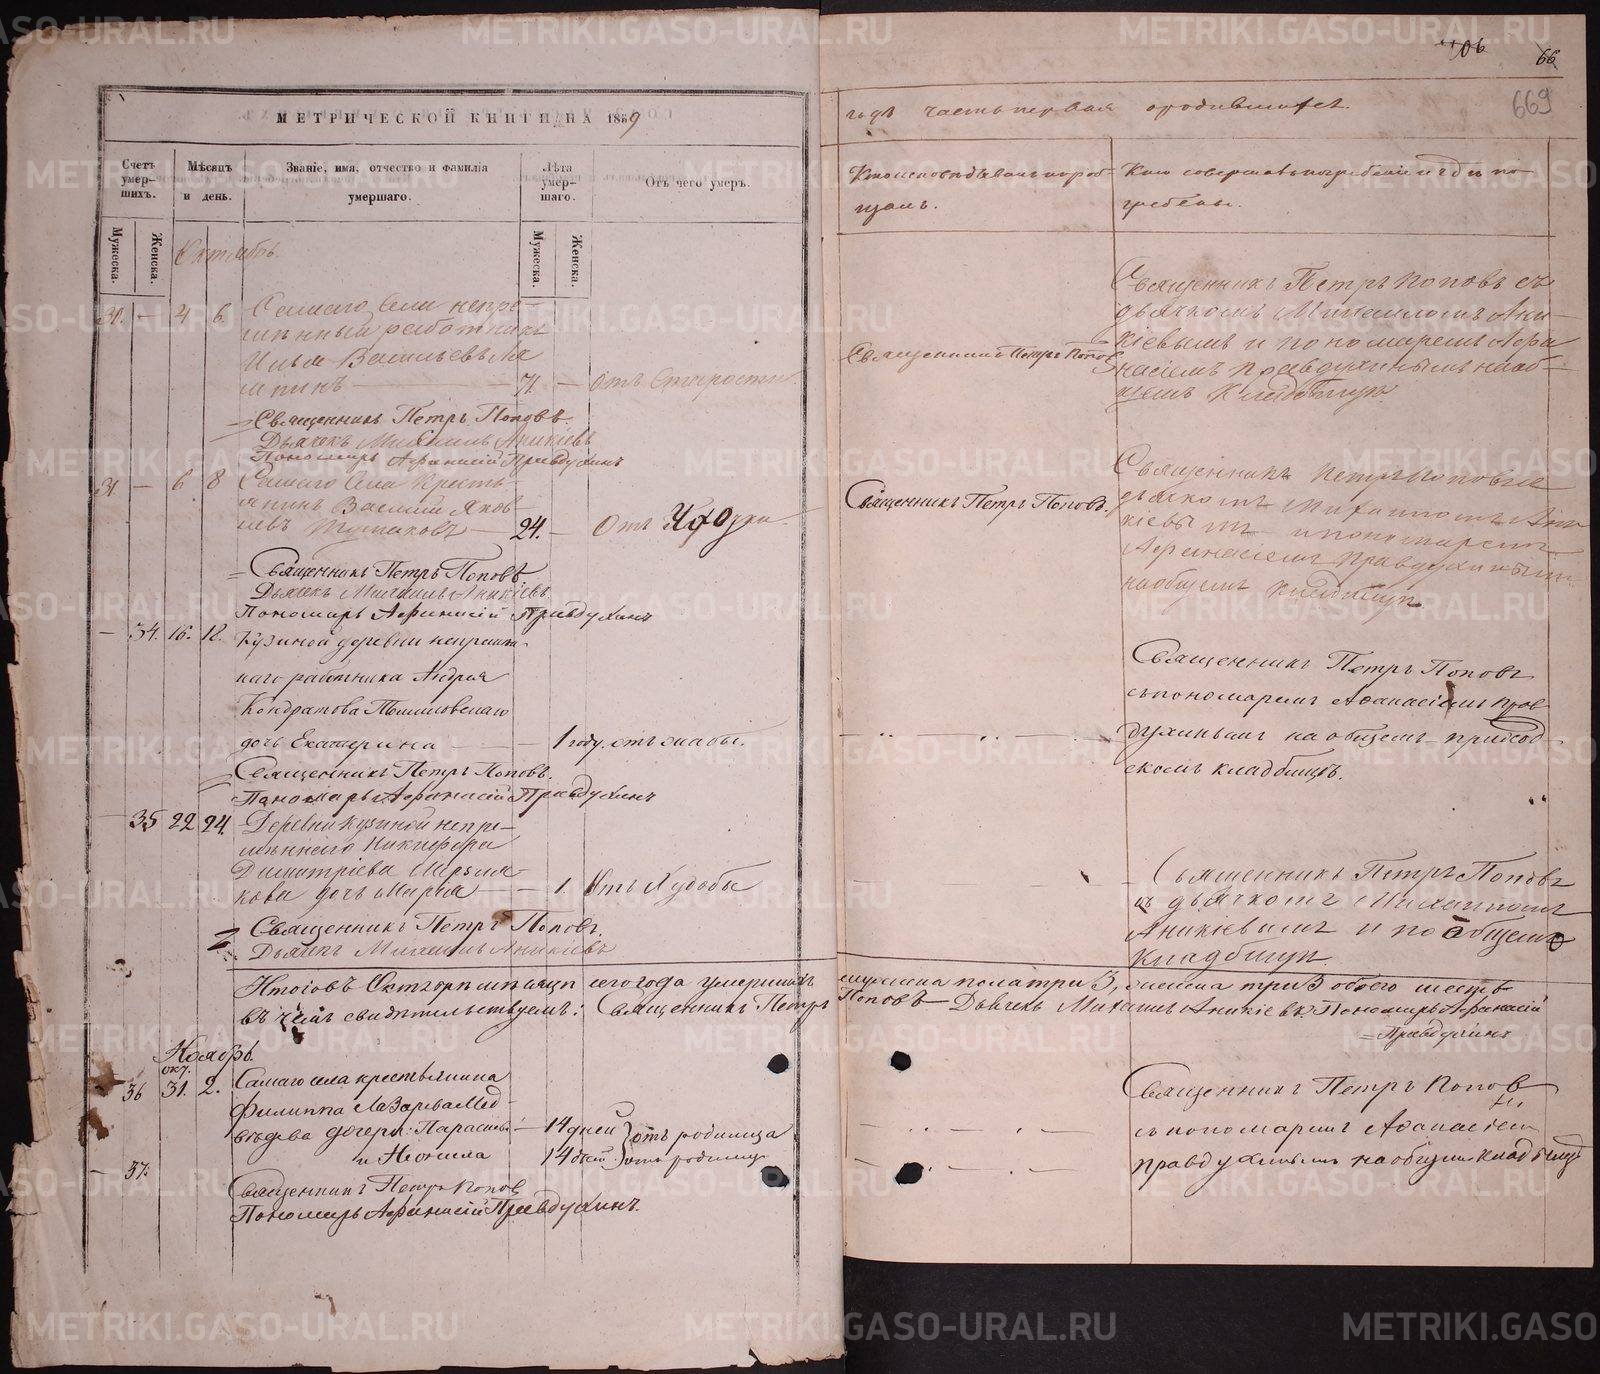 МЕТРИЧЕСКОЙ КНИГИ НА 1859
Счетъ умерших.
Мѣсяцъ и день.
Званіе, имя, отчество и фамилія умершаго.
Лѣта умершаго.
Отъ чего умеръ.
Мужеска.
Женска.
Мужеска.
Женска.
Октябрь.
31. — 4 6 Самаго Села непре-
мѣнный работникъ
Илья Васильевъ Ля
пинъ — 71. — Отъ Старости.
Священникъ Петръ Поповъ.
Дьячекъ Михаилъ Аникіевъ
Пономарь Афанасій Правдухинъ
31 — 6 8 Самаго Села Кресть-
янинъ Василий Яков-
левъ — 24. — Отъ
Священникъ Петръ Поповъ
Дьячекъ Михаилъ Аникіевъ
Пономарь Афанасій Правдухинъ
— 34. 16. 18. Кузиной деревни непремѣн-
наго работника Андрея
Кондратова
дочь Екатерина — 1 году. отъ слабы.
Священникъ Петръ Поповъ.
Пономарь Афанасій Правдухинъ
— 35 22 24. Деревни Кузиной непре-
мѣннаго Никифора
Димитріева
кова дочь Мария — 1. Отъ Худобы
Священникъ Петръ Поповъ.
Дьячекъ Михаилъ Аникіевъ
Итого въ Октябрѣ мѣсяцѣ сего года умершихъ
въ чемъ свидѣтельствуемъ: Священникъ Петръ
Ноябрь
окт.
36 31. 2. Самаго села крестьянина
Филиппа Лазарева Мед-
вѣдева дочери: Парасковья — 14 дней отъ родимца
и Неонила 14 дней отъ родимца
— 37.
Священникъ Петръ Поповъ
Пономарь Афанасій Правдухинъ.
406
66
669
годъ часть первая о родившихся.
Кто исповѣдывалъ и пріоб-
щалъ.
Кто совершалъ погребеніе и гдѣ по-
гребены.
Священникъ Петръ Поповъ
Священникъ Петръ Поповъ съ
дьячкомъ Михаиломъ Ани-
кіевымъ и пономаремъ Афа
насіемъ Правдухинымъ на об-
щемъ Кладбищѣ
Священникъ Петръ Поповъ.
Священникъ Петръ Поповъ съ
дьячкомъ Михаиломъ Ани
кіевымъ и пономаремъ
Афанасіемъ Правдухинымъ
на общемъ Кладбищѣ
Священникъ Петръ Поповъ
съ пономаремъ Афанасіемъ Прав
духинымъ на общемъ приход-
скомъ кладбищѣ.
Священникъ Петръ Поповъ
съ дьячкомъ Михаиломъ
Аникіевымъ и на общемъ
Кладбищѣ
мужеска пола три 3, женска три 3 обоего шесть
Поповъ Дьячекъ Михаилъ Аникіевъ Пономарь Афанасій
Правдухинъ
Священникъ Петръ Поповъ
съ пономаремъ Афанасіемъ
Правдухинымъ на общемъ Кладбищѣ
METRIKI.GASO-URAL.RU